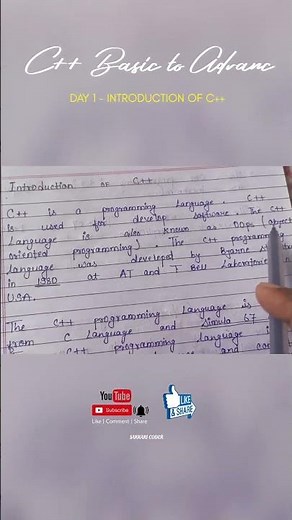 C++ Basic to Advanc
DAY 1 - INTRODUCTION OF C++
Introduction OF C++
C++ is a programming language. C++
is used for develop software. The C++
Language is also known as OOPs (object
oriented programming). The C++ programming
Language was developed by Bjarne
in 1980 at AT and T Bell Laboratorie
U.S.A.
The C++ programming Language is
from C Language and Simula 67
C++ programming language i
and com
YouTube
Subscribe
LIKE & SHARE
Like | Comment | Share
SARKARI CODER